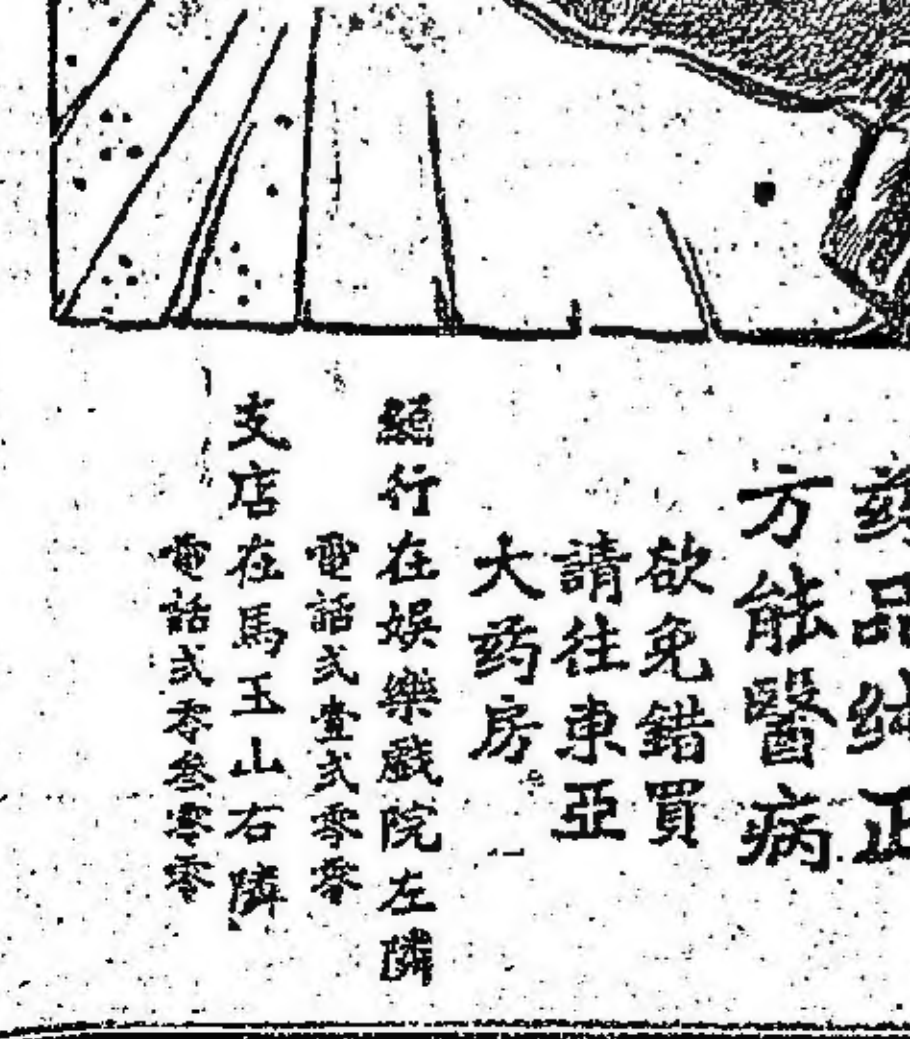 药品纯正
方能醫病
欲免錯買
請往東亞
大药房
總行在娛樂戲院左隣
電話弍壹弍零零
支店在馬玉山右隣
電話弍零叁零零